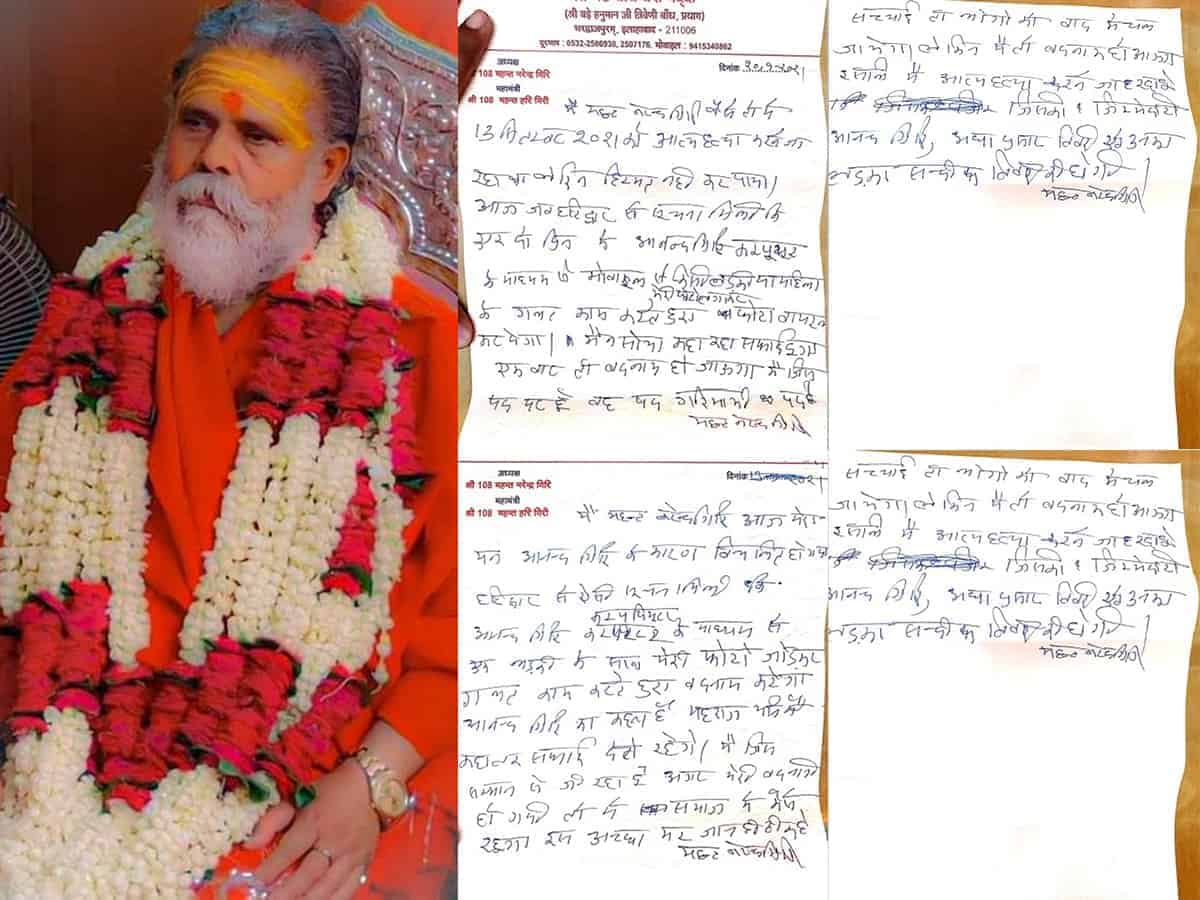 (श्री बड़े हनुमान जी त्रिवेणी बाँध, प्रयाग)
भरद्वाजपुरम्, इलाहाबाद - 211006
दूरभाष : 0532-2506930, 2507176. मोबाइल : 9415340862
अध्यक्ष
श्री 108 महन्त नरेन्द्र गिरि
दिनांक
महामंत्री
श्री 108 महन्त हरि गिरी
मै महन्त नरेन्द्र गिरि
13 सितम्बर 2021 को आत्महत्या करने जा
रहा था लेकिन हिम्मत नही कर पाया।
आज जब हरिद्वार से सूचना मिली कि
एक दो दिन के आनन्द गिरि कम्पूटर
के माध्यम से मोबाइल से किसी लड़की या महिला
मेरी फोटो लगाकर
के गलत काम करते हुए फोटो वायरल
कर देगा। मैने सोचा कहा सफाई दूगा
एक बार तो बदनाम हो जाऊगा मै जिस
पद पर हूँ वह पद गरिमामयी पद है
महन्त नरेन्द्र गिरि
सच्चाई तो लोगो को बाद मे चल
जायेगा लेकिन मै तो बदनाम हो जाऊगा
इसलिए मै आत्महत्या करने जा रहा हूँ
जिसकी जिम्मेदारी
आनन्द गिरि, अद्या प्रसाद तिवारी एवं उनका
लड़का सन्दीप तिवारी की होगी।
महन्त नरेन्द्र गिरि
अध्यक्ष
श्री 108 महन्त नरेन्द्र गिरि
दिनांक
महामंत्री
श्री 108 महन्त हरि गिरी
मै महन्त नरेन्द्र गिरि आज मेरा
मन आनन्द गिरि के कारण विचलित हो गया
हरिद्वार से ऐसी सूचना मिली कि
आनन्द गिरि के माध्यम से
एक लड़की के साथ मेरी फोटो जोड़कर
गलत काम करते हुए बदनाम करेगा
आनन्द गिरि का कहना है महराज यानि मै
कहा तक सफाई देते रहेगे। मै जिस
सम्मान से जी रहा हूँ अगर मेरी बदनामी
हो गयी तो मै समाज मे कैसे
रहूगा इससे अच्छा मर जाना ही ठीक है
महन्त नरेन्द्र गिरि
सच्चाई तो लोगो को बाद मे चल
जायेगा लेकिन मै तो बदनाम हो जाऊगा
इसलिए मै आत्महत्या करने जा रहा हूँ
जिसकी जिम्मेदारी
आनन्द गिरि, अद्या प्रसाद तिवारी एवं उनका
लड़का सन्दीप तिवारी की होगी।
महन्त नरेन्द्र गिरि